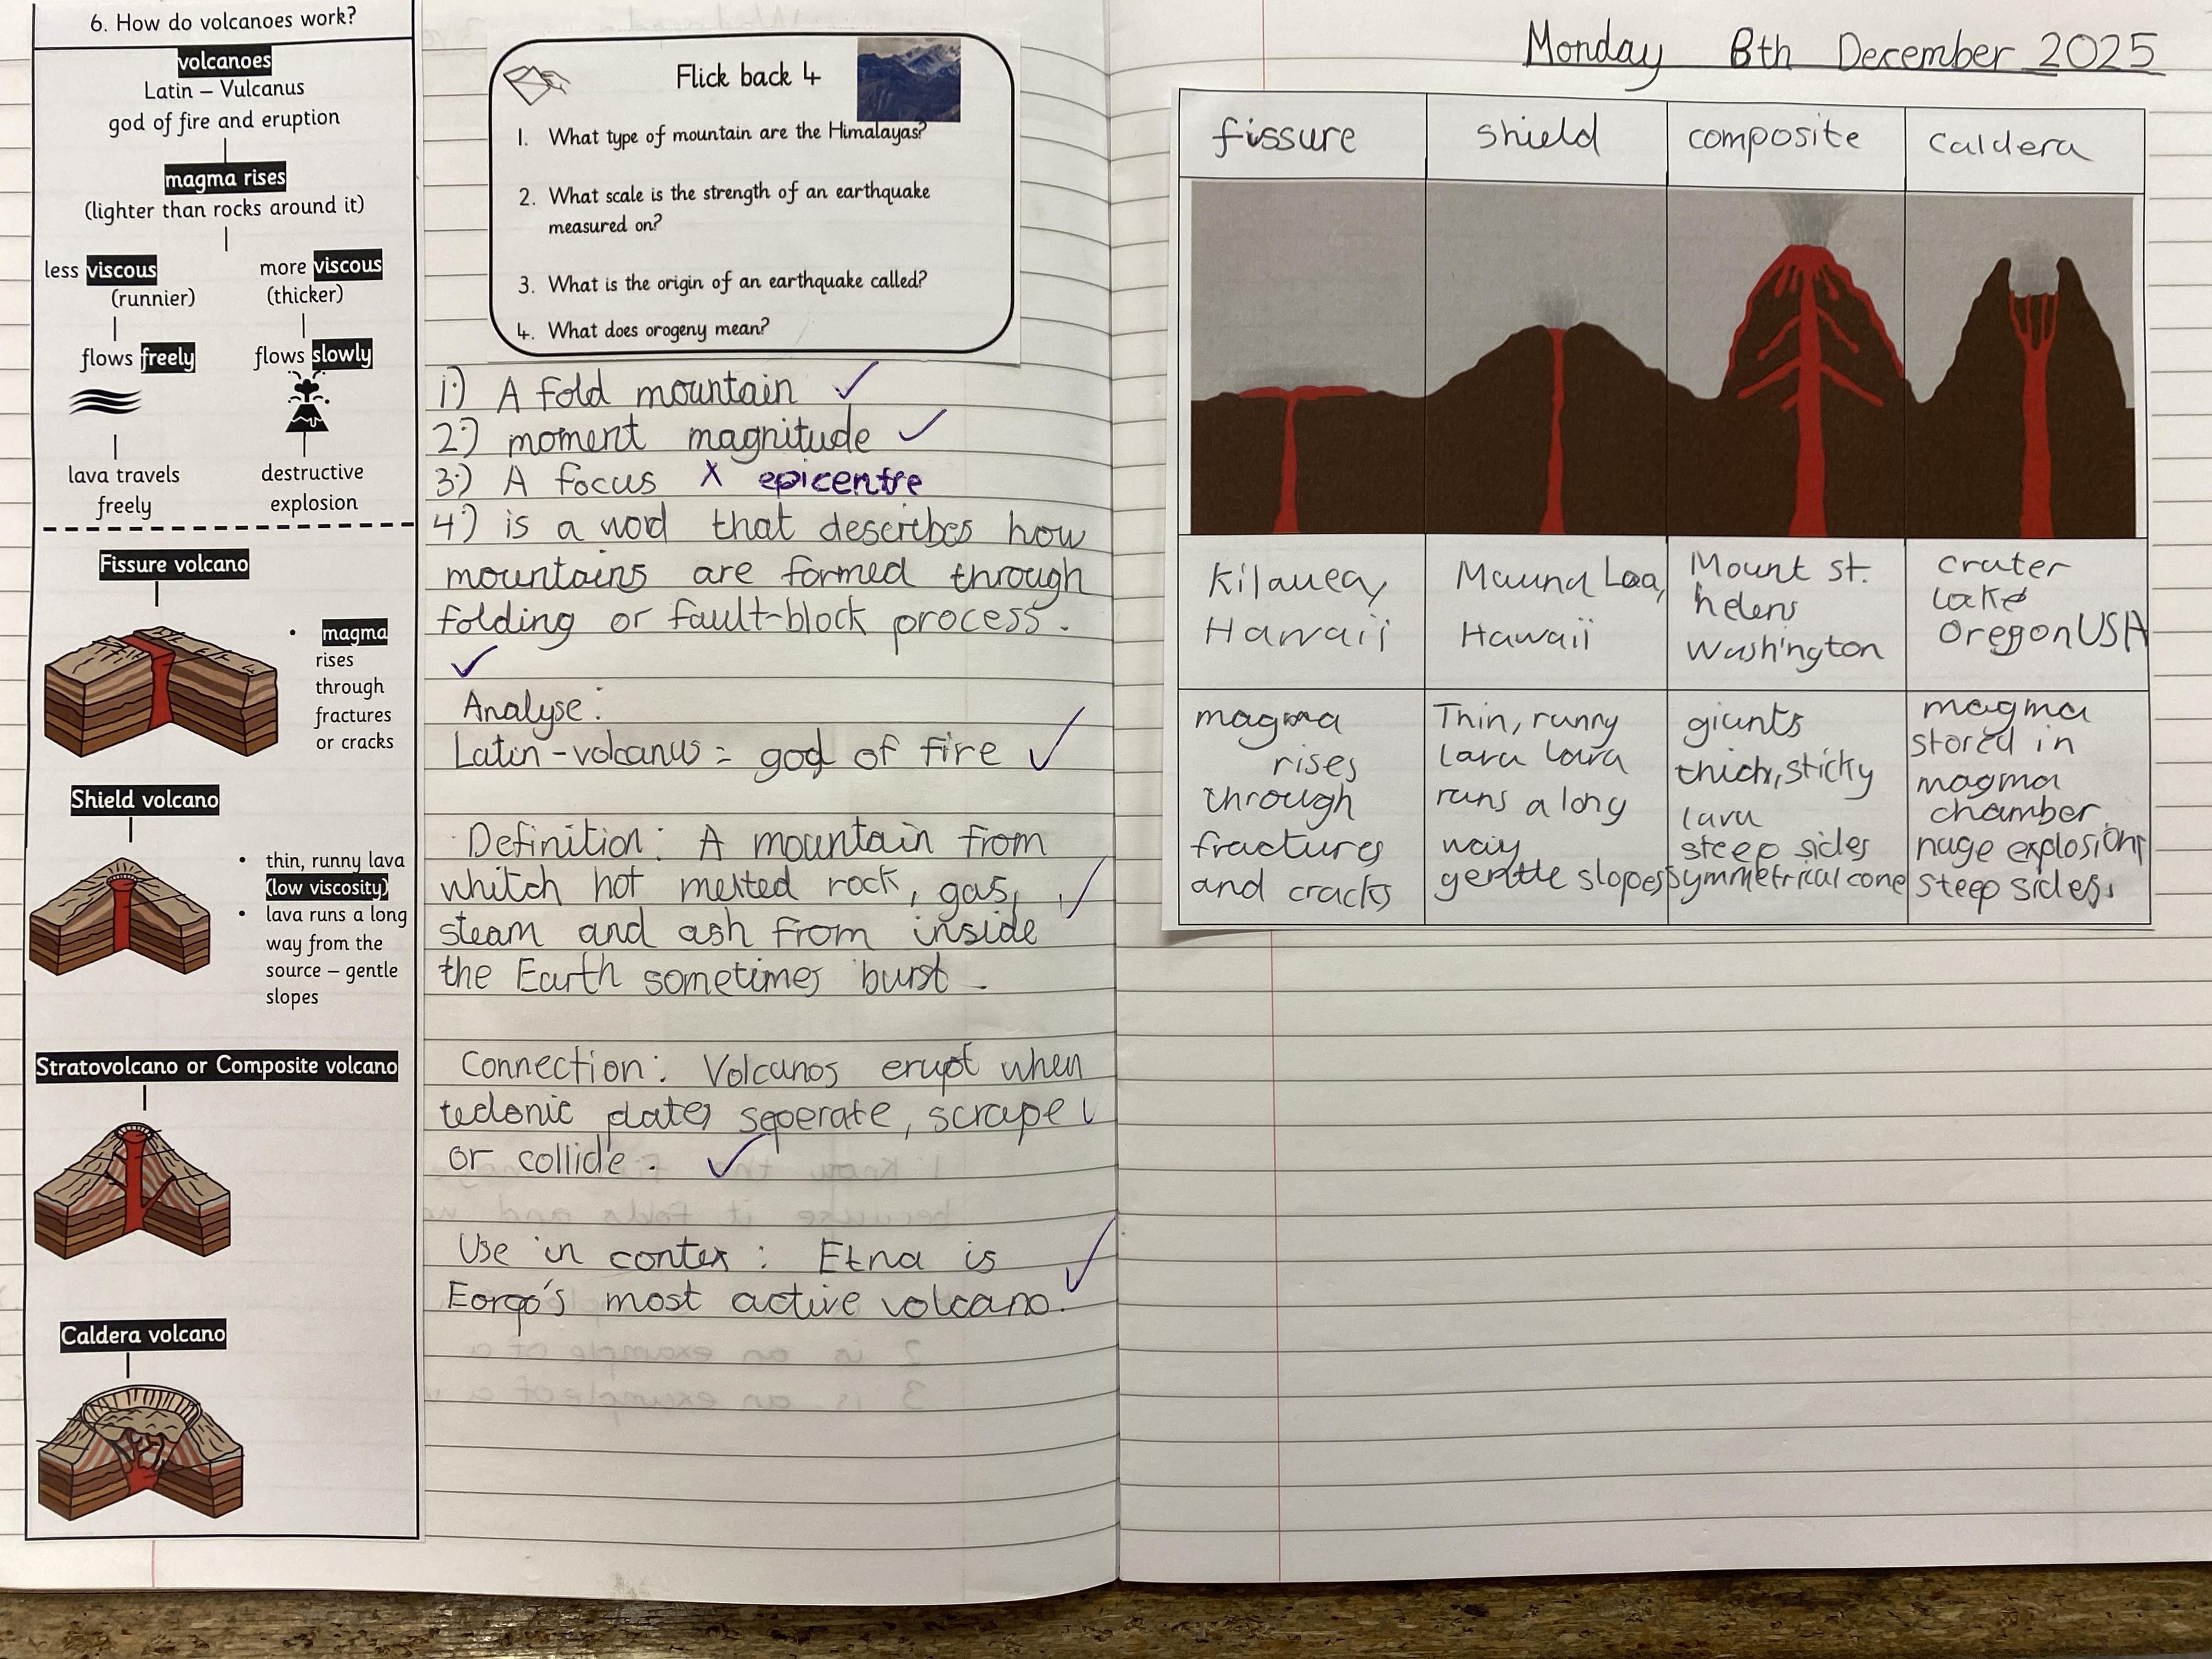 6. How do volcanoes work?
volcanoes
Latin – Vulcanus
god of fire and eruption
magma rises
(lighter than rocks around it)
less viscous
(runnier)
flows freely
lava travels
freely
more viscous
(thicker)
flows slowly
destructive
explosion
Fissure volcano
• magma
rises
through
fractures
or cracks
Shield volcano
• thin, runny lava
(low viscosity)
• lava runs a long
way from the
source – gentle
slopes
Stratovolcano or Composite volcano
Caldera volcano
Flick back 4
1. What type of mountain are the Himalayas?
2. What scale is the strength of an earthquake
measured on?
3. What is the origin of an earthquake called?
4. What does orogeny mean?
1) A fold mountain ✓
2) moment magnitude ✓
3) A focus X epicentre
4) is a word that describes how
mountains are formed through
folding or fault-block process.
✓
Analyse:
Latin-volcanus = god of fire ✓
Definition: A mountain from
whitch hot melted rock, gas, ✓
steam and ash from inside
the Earth sometimes burst.
Connection: Volcanos erupt when
tectonic plates seperate, scrape
or collide. ✓
Use in contex: Etna is
most active volcano. ✓
Monday 8th December 2025
fissure
shield
composite
caldera
Kilauea,
Hawaii
Mauna Loa,
Hawaii
Mount st.
helens
Washington
crater
lake
Oregon USA
magma
rises
through
fractures
and cracks
Thin, runny
lava lava
runs a long
way
gentle slopes
giants
thick, sticky
lava
steep sides
symmetrical cone
magma
stored in
magma
chamber
huge explosions
steep sides.